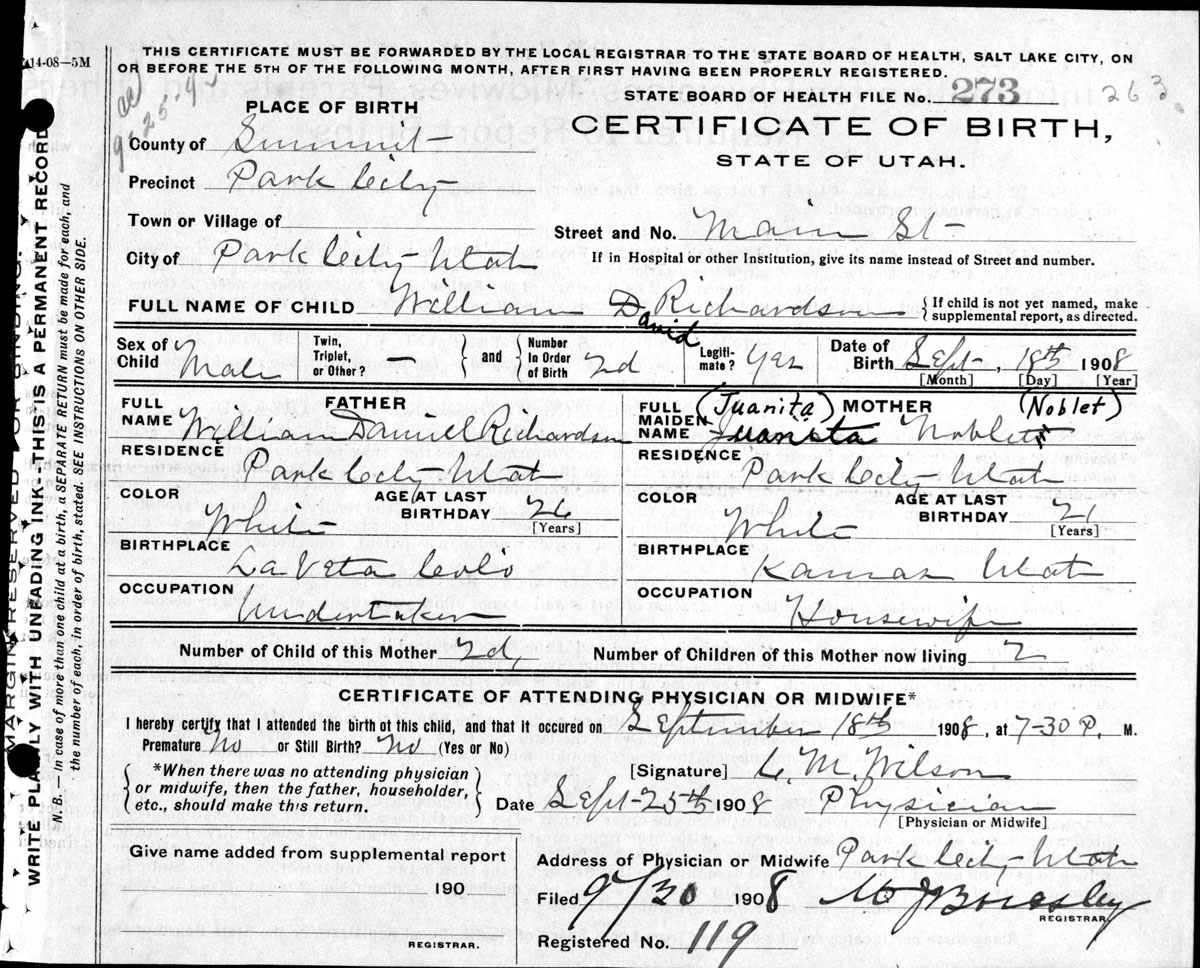 14-08—5M
THIS CERTIFICATE MUST BE FORWARDED BY THE LOCAL REGISTRAR TO THE STATE BOARD OF HEALTH, SALT LAKE CITY, ON
OR BEFORE THE 5TH OF THE FOLLOWING MONTH, AFTER FIRST HAVING BEEN PROPERLY REGISTERED.
STATE BOARD OF HEALTH FILE No. 273 263
PLACE OF BIRTH
CERTIFICATE OF BIRTH,
STATE OF UTAH.
County of Summit
Precinct Park City
Town or Village of
Street and No. Main St
City of Park City Utah
If in Hospital or other Institution, give its name instead of Street and number.
FULL NAME OF CHILD William David Richardson
{If child is not yet named, make
supplemental report, as directed.
Sex of Child Male
Twin, Triplet, or Other? — and Number In Order of Birth 2d
Legiti-mate? Yes
Date of Birth Sept, 18th 1908
[Month] [Day] [Year]
FATHER
FULL NAME William Daniel Richardson
RESIDENCE Park City Utah
COLOR White
AGE AT LAST BIRTHDAY 26
[Years]
BIRTHPLACE La Veta Colo
OCCUPATION Undertaker
MOTHER
(Juanita) (Noblet)
FULL MAIDEN NAME Juanita Noblett
RESIDENCE Park City Utah
COLOR White
AGE AT LAST BIRTHDAY 21
[Years]
BIRTHPLACE Kamas Utah
OCCUPATION Housewife
Number of Child of this Mother 2d,
Number of Children of this Mother now living 2
CERTIFICATE OF ATTENDING PHYSICIAN OR MIDWIFE*
I hereby certify that I attended the birth of this child, and that it occured on September 18th 1908, at 7-30 P. M.
Premature No or Still Birth? No (Yes or No)
{*When there was no attending physician
or midwife, then the father, householder,
etc., should make this return.}
[Signature] L. M. Wilson
Date Sept-25th 1908 Physician
[Physician or Midwife]
Give name added from supplemental report
190
REGISTRAR.
Address of Physician or Midwife Park City Utah
Filed 9/30 1908
REGISTRAR
Registered No. 119
MARGIN RESERVED FOR BINDING.
WRITE PLAINLY WITH UNFADING INK-THIS IS A PERMANENT RECORD
N. B.— In case of more than one child at a birth, a SEPARATE RETURN must be made for each, and
the number of each, in order of birth, stated. SEE INSTRUCTIONS ON OTHER SIDE.